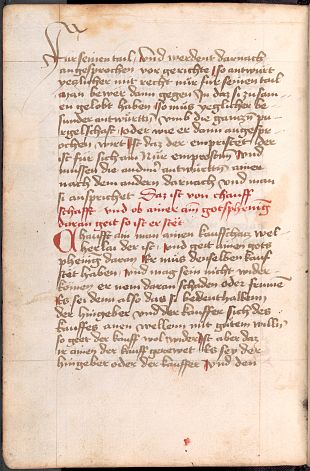 Fur seinen tail / Und werdent darnach
angesprochen vor gerichte / so antwurt
yeglicher mit recht nür für seinen tail
man bewer dann gegen In daz si zusam
en gelobt haben so müs yeglicher be
sunder antwürtten / umb die ganczn pu
rgelschaft / oder wie er dann angespr
ochen wirt ist daz der empristet der
ist für sich am Nür empresten / Und
müssen die andern antwürtten ainer
nach dem andern darnach und man
si ansprichet Daz ist von chauff
schafft und ob ainer ain gotsphening
daran geit so ist er stet
Chaufft ain man ainen kauffschacz wel
herlai der ist / und geit ainen gots
phening daran Er müs denselben kauf
stët haben / und mag sein nicht wider
komen er nem daran schaden oder frumen
Es sei denn also das si bedenthalben
der hingeber und der kauffer sich des
kauffes anen wellenn mit gutem willn
so geet der kauff wol wider Ist aber daz
ir ainen der kauff gerewet Es sey der
hingeber oder der kauffer / und den